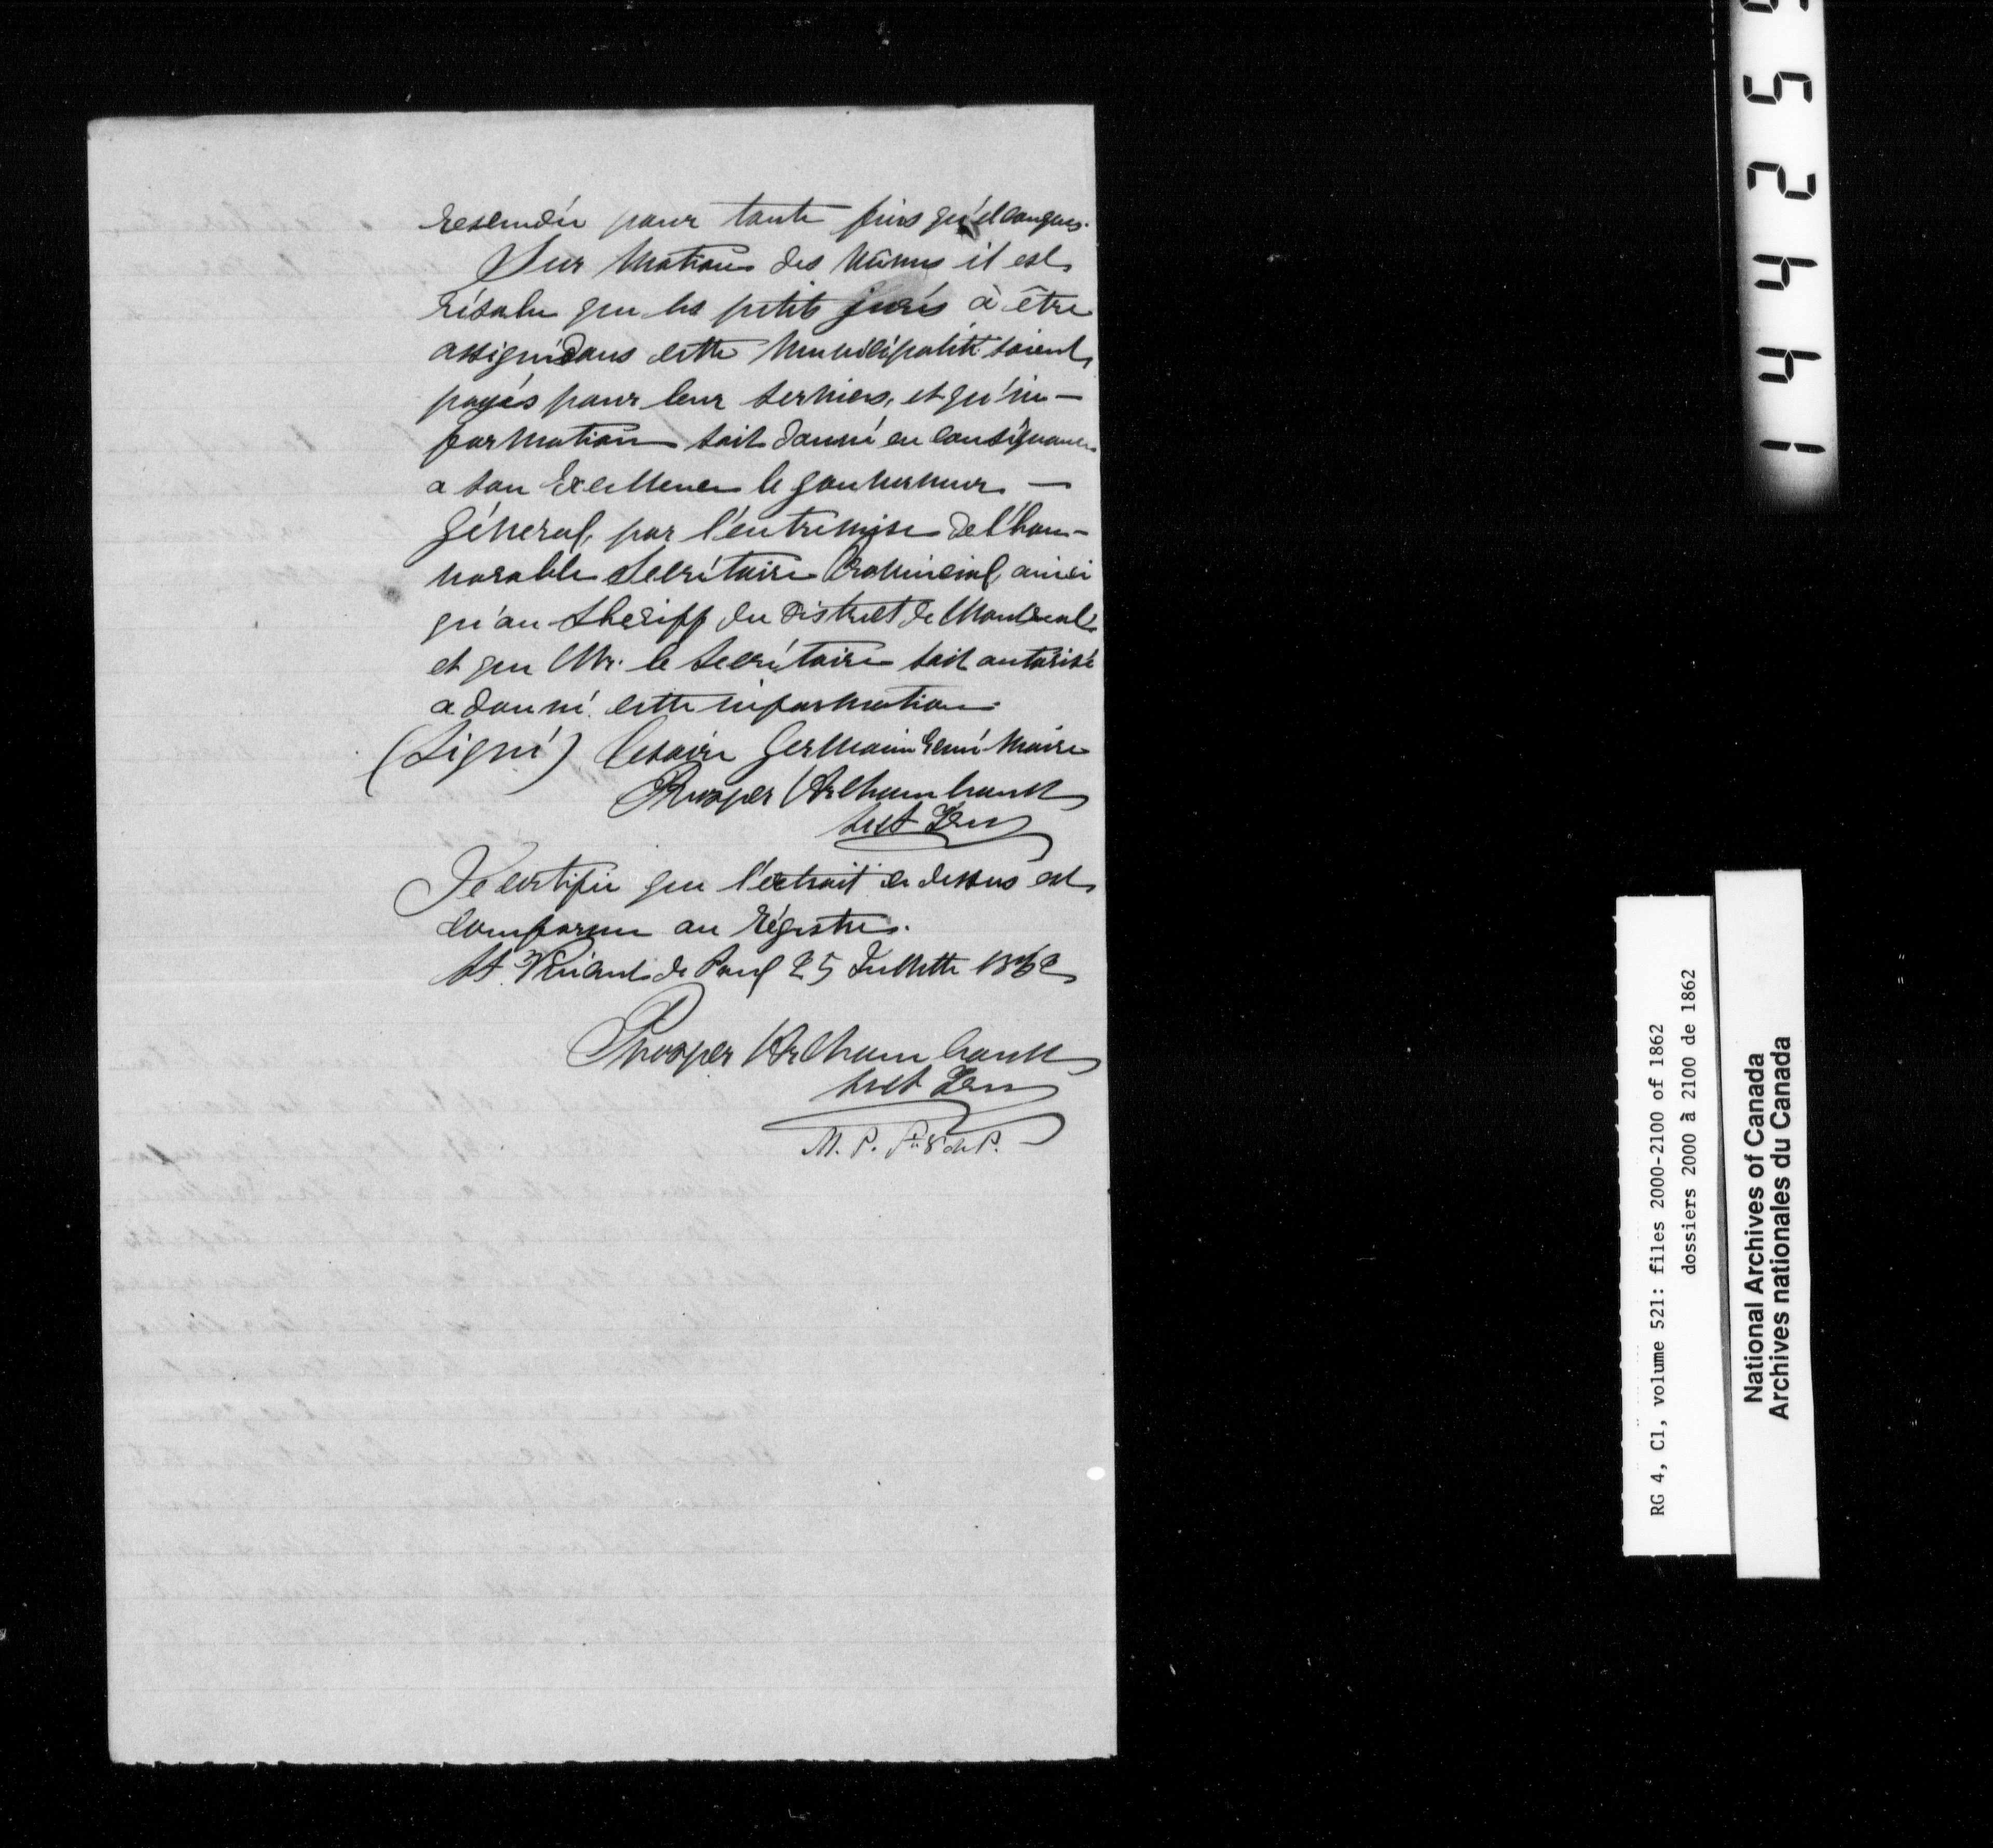 pour toute fins qu'elconques.
Sur Motions des Mêmes il est
résolu que les petits jurés à être
assigné dans cette Municipalité soient
payés pour leur services, et qu'in-
formation soit donné en conséquence
a son Excellence le gouverneur —
Général, par l'entremise de l'hon-
norable Secrétaire Provincial, ainsi
qu'au Sheriff du District de Montreal
et que Mr. le Secrétaire soit autorisé
a donné cette information
(Signé) Cesaire Germain Maire
Prosper Archambault
Sect Trés
Je certifie que l'extrait ci dessus est
Conforme au Régistre.
St. Vincent de Paul 25 Juillette 1862
Prosper Archambault
Sect Trés
M. P. de P.
RG 4, C1, volume 521: files 2000-2100 of 1862
dossiers 2000 à 2100 de 1862
National Archives of Canada
Archives nationales du Canada
14425